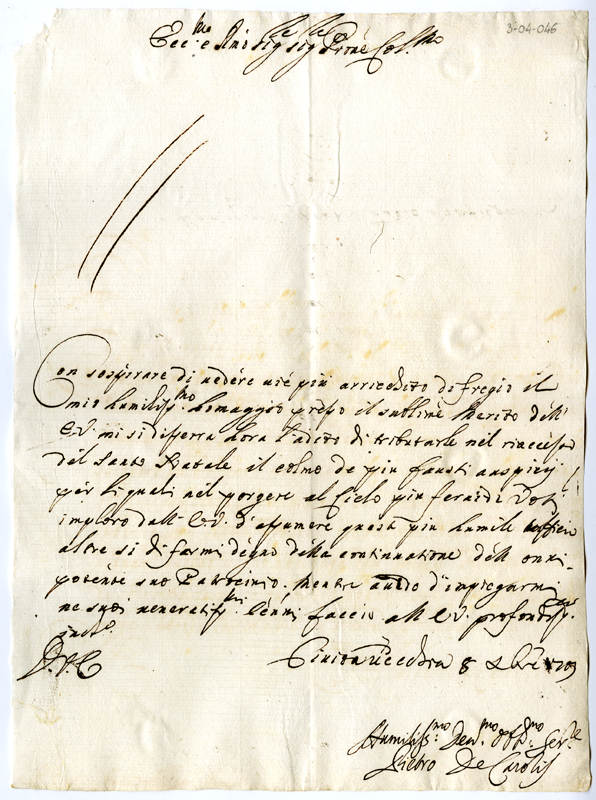 3-04-046
Ecc.mo e Rmo Sig Sig Prone Col.mo
Con sospirare di uedere uie più arricchito di fregio il
mio humiliss.mo homaggio presso il sublime Merito dell'
E.V. mi si disserra hora l'adito di tributarle nel riaccesso
del Santo Natale il colmo de piu fausti auspicij
per li quali nel porgere al Cielo piu feruidi Voti
imploro dall' E.V. d'assumere questo piu humile
altre si di farmi degno della continuatione dell' onni-
potente suo Patrocinio. Mentre d'impiegarmi
ne suoi ueneratiss.mi Cenni faccio all E.V. profondiss.ma
D.V.E
Ciuita Vecchia 8 Xbre 1709
Humiliss.mo Deu.mo Ser.e
Pietro De Carolis